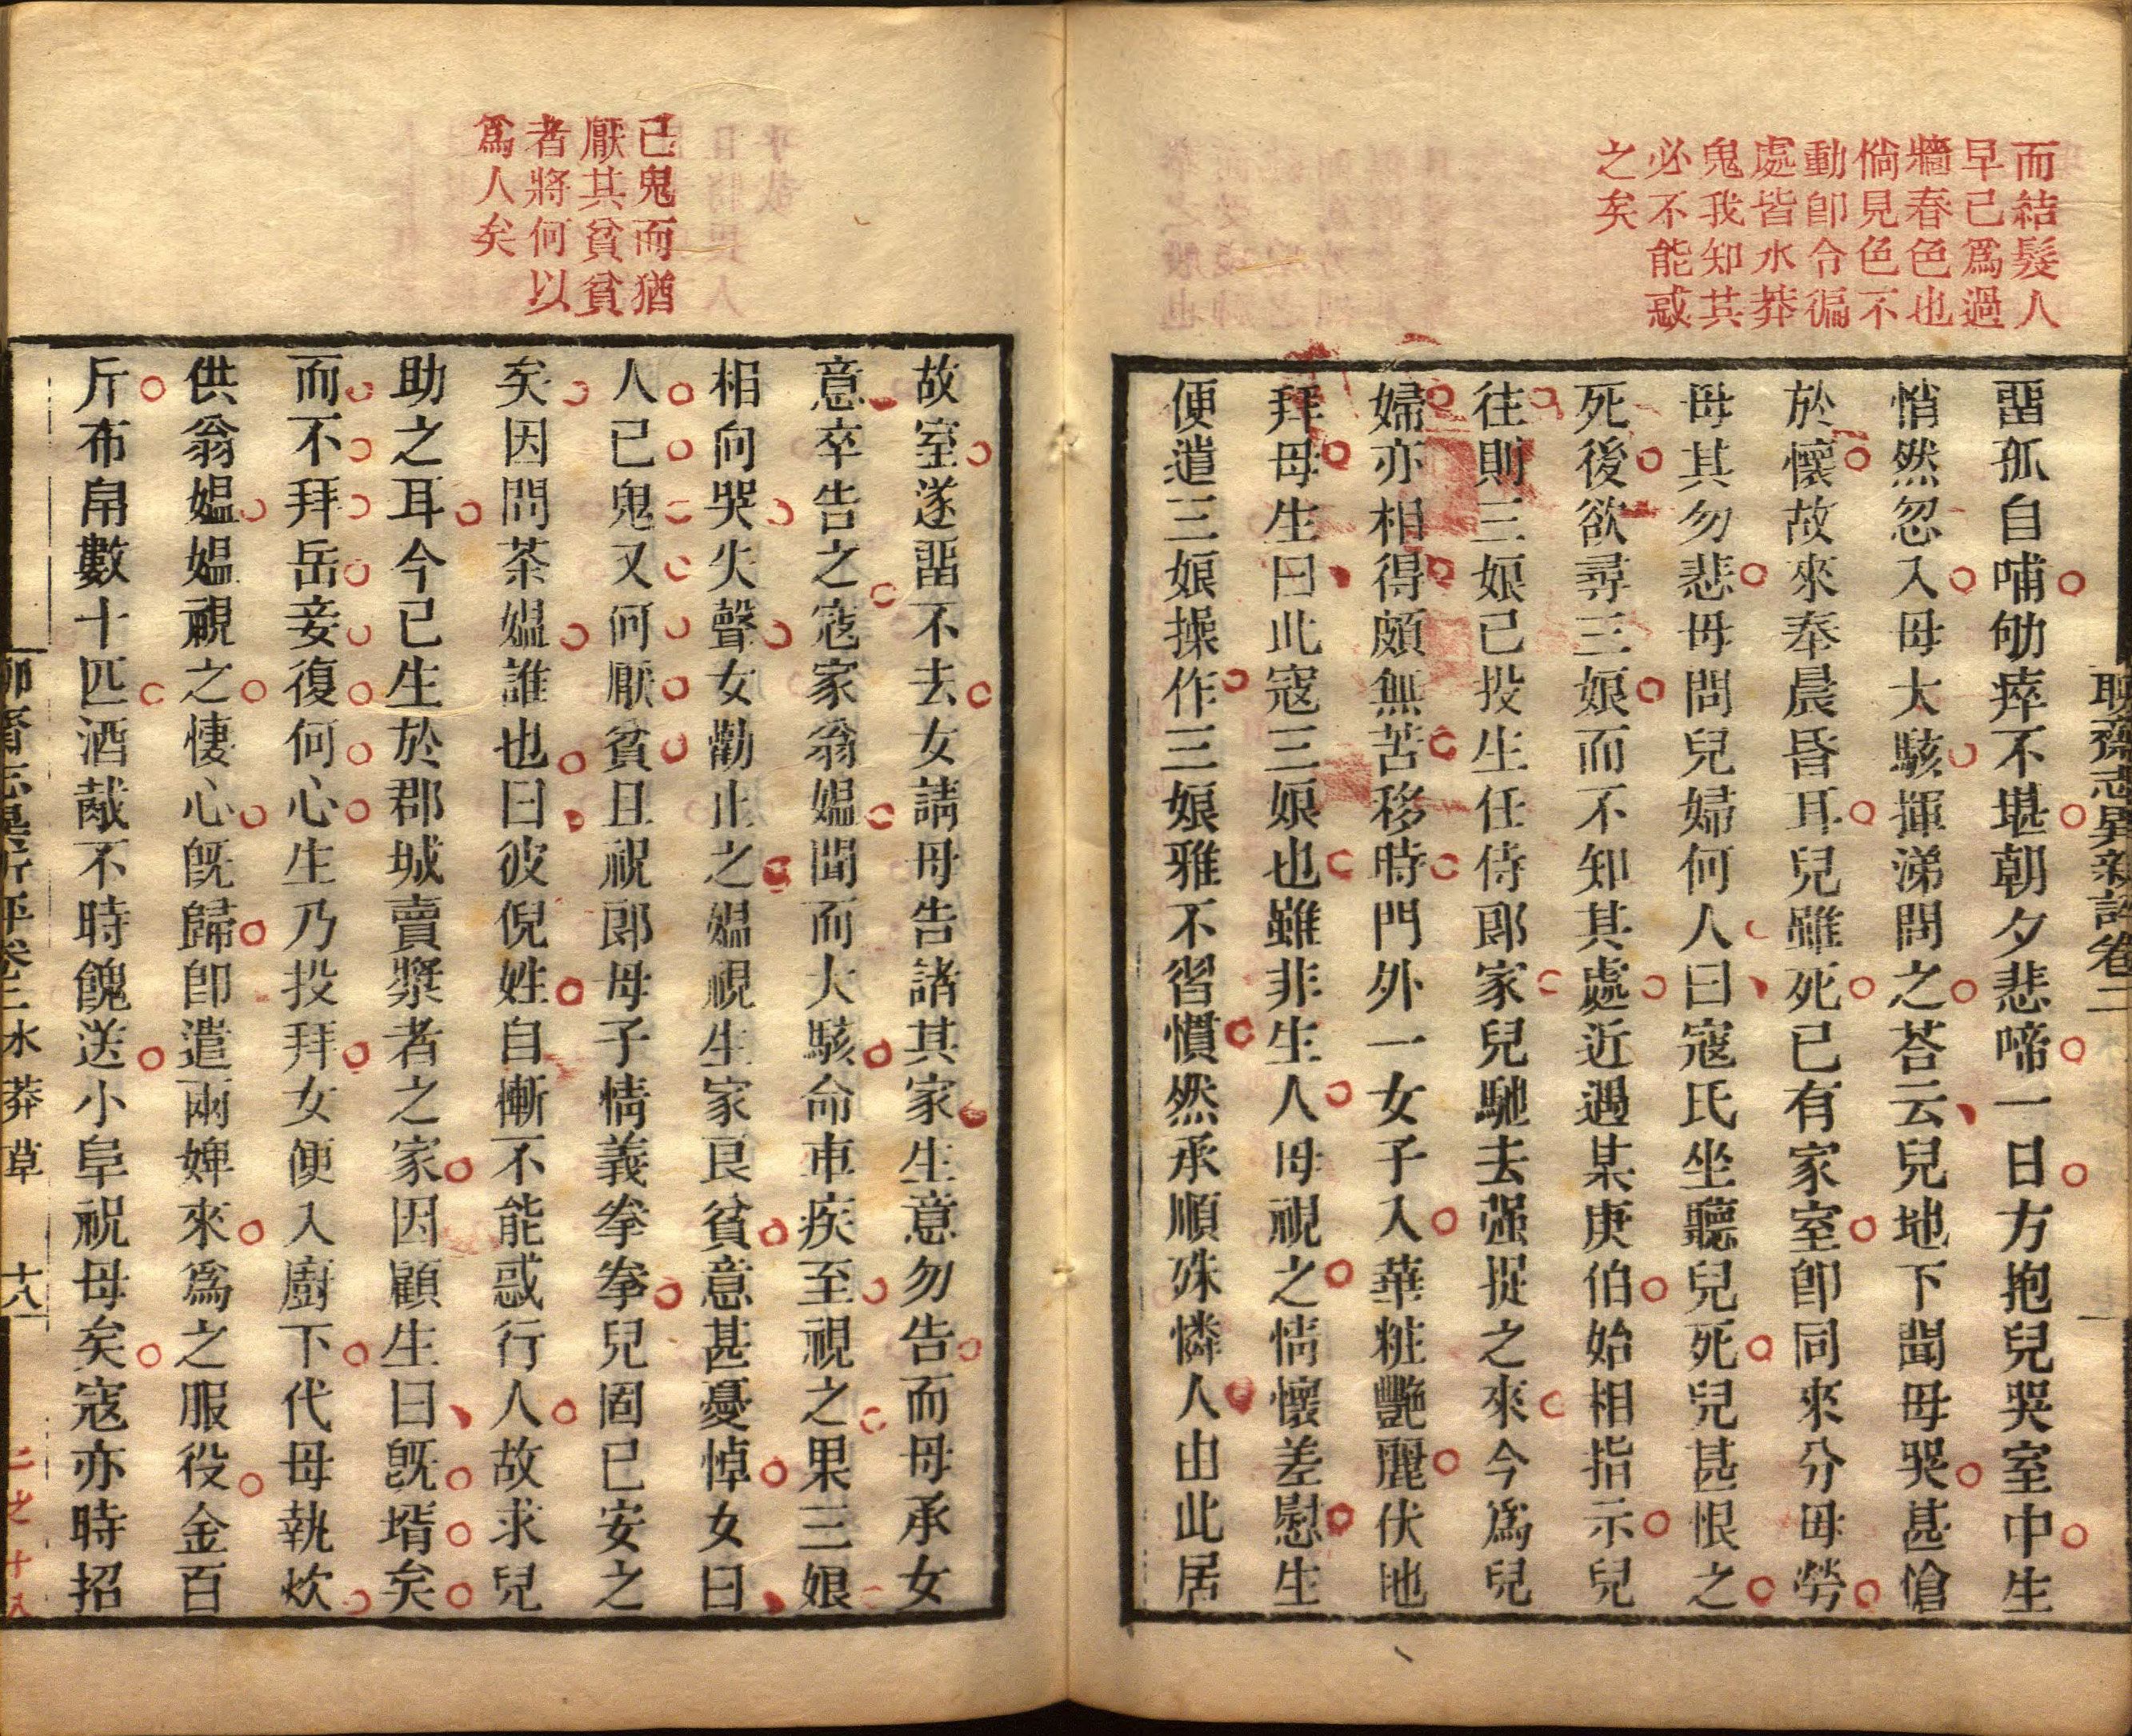 而結髮人
早已爲過
牆春色也
倘見色不
動卽令徧
處皆水莽
鬼我知其
必不能惑
之矣
聊齋志異新評卷二
畱孤自哺劬瘁不堪朝夕悲啼一日方抱兒哭室中生
悄然忽入母大駭揮涕問之荅云兒地下聞母哭甚愴
於懷故來奉晨昏耳兒雖死已有家室卽同來分母勞
母其勿悲母問兒婦何人曰寇氏坐聽兒死兒甚恨之
死後欲尋三娘而不知其處近遇某庚伯始相指示兒
往則三娘已投生任侍郎家兒馳去强捉之來今爲兒
婦亦相得頗無苦移時門外一女子入華粧艷麗伏地
拜母生曰此寇三娘也雖非生人母視之情懷差慰生
便遣三娘操作三娘雅不習慣然承順殊憐人由此居
已鬼而猶
厭其貧貧
者將何以
爲人矣
故室遂畱不去女請母告諸其家生意勿告而母承女
意卒告之寇家翁媼聞而大駭命車疾至視之果三娘
相向哭失聲女勸止之媼視生家良貧意甚憂悼女曰
人已鬼又何厭貧且祝郎母子情義拳拳兒固已安之
矣因問茶媼誰也曰彼倪姓自慚不能惑行人故求兒
助之耳今已生於郡城賣漿者之家因顧生曰旣壻矣
而不拜岳妾復何心生乃投拜女便入廚下代母執炊
供翁媼媼視之悽心旣歸卽遣兩婢來爲之服役金百
斤布帛數十匹酒胾不時餽送小阜祝母矣寇亦時招
聊齋志異新評卷二 水莽草 十八
二之十八